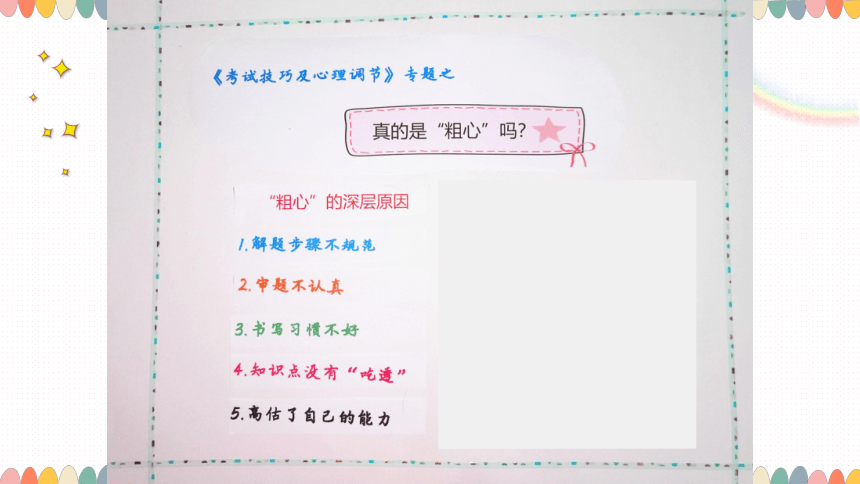 《考试技巧及心理调节》专题之
真的是“粗心”吗?
“粗心”的深层原因
1.解题步骤不规范
2.审题不认真
3.书写习惯不好
4.知识点没有“吃透”
5.高估了自己的能力